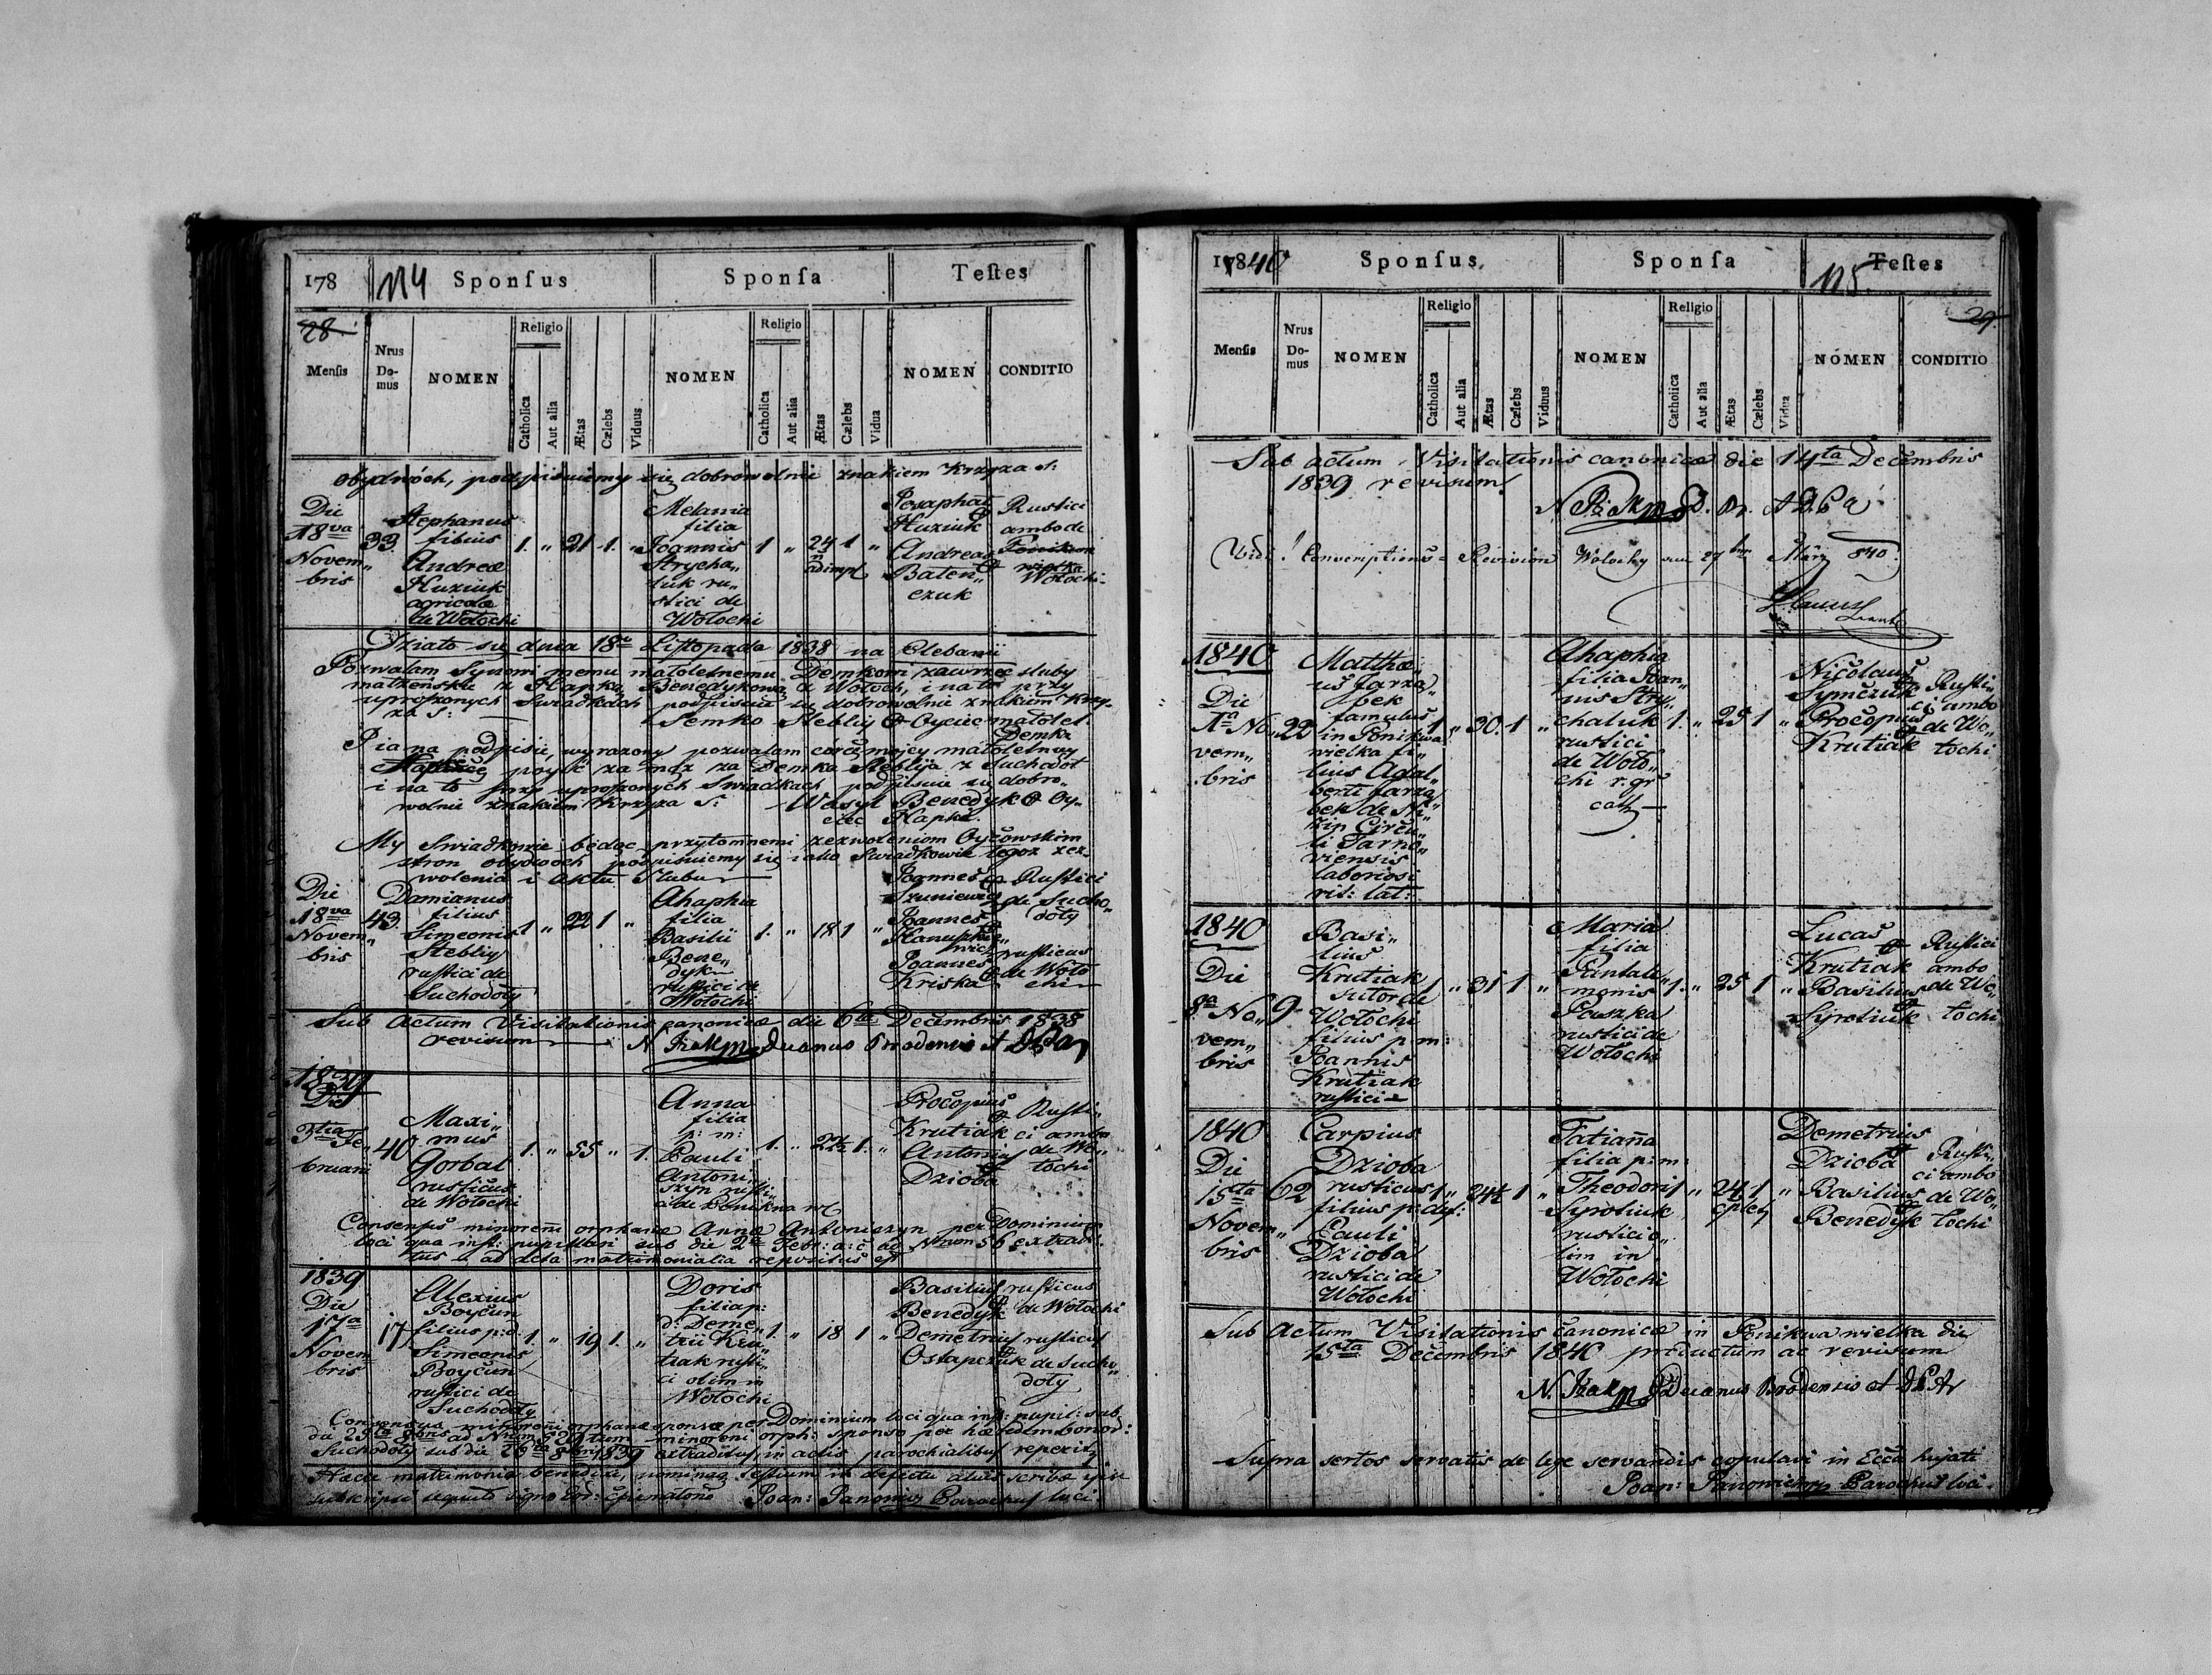 178 114 Sponſus Sponſa Teſtes
28.
Menſis Nrus Domus NOMEN Religio Catholica Aut alia Ætas Cælebs Viduus NOMEN Religio Catholica Aut alia Ætas Cælebs Vidua NOMEN CONDITIO
obydwóch, podpisuiemy się dobrowolnie znakiem Krzyża S:
Die
18va
Novem„
bris
33.
Stephanus
filius
Andreæ
Huziuk
agricolæ
de Wołochi
1. „ 21 1. „
Melania
filia
Joannis
Strycha„
luk ru„
stici de
Wołochi
1 „ 24 1 „
adimpl
Josaphat
Huziuk
Andreas
Baten„
czuk
Rustici
ambo de
Wołochi
Działo się dnia 18go Listopada 1838 na Plebanii
Pozwalam Synowi memu małoletnemu Demkowi zawrzeć śluby
małżeńskie z Hapką Benedykową z Wołoch, i na to przy
uproszonych Świadkach podpisuię się dobrowolnie znakiem Krzy„
ża S: Semko Stebliy Oyciec małolet.
Demka
I ia na podpisie wyrażony pozwalam córce moiey małoletney
Hapce poyść za mąż za Demka Steblija z Suchodoł
i na to przy uproszonych Świadkach podpisuię się dobro„
wolnie znakiem Krzyża S: Wasyl Benedyk Oy„
ciec Hapki.
My Świadkowie będąc przytomnemi zezwoleniom Oycowskim
stron obydwóch podpisuiemy się iako Świadkowie tegoż zez„
wolenia i aktu Ślubu
Die
18va
Novem„
bris
43.
Damianus
filius
Simeonis
Stebliy
rustici de
Suchodoły
1 „ 22 1 „
Ahaphia
filia
Basilii
Bene„
dyk
rustici de
Wołochi
1. „ 18 1 „
Joannes
Szuniewicz
Joannes
Hanuphie„
wicz
Joannes
Kriska
Rustici
de Sucho„
doły
rusticus
de Woło„
chi
Sub Actum Visitationis canonicæ die 6ta Decembris 1838
revisum
1839
Die
3tia Fe„
bruarii
40
Maxi„
mus
Gorbal
rusticus
de Wołochi
1. „ 55 „ 1.
Anna
filia
p: m:
Pauli
Antoni„
szyn rusti„
ci de Ponikwa
1. „ 22 1. „
Procopius
Krutiak
Antonius
Dzioba
Rusti„
ci ambo
de Wo„
łochi
Consensus minorenni orphanæ Annæ Antoniszyn per Dominium
loci qua inst: pupillari sub die 2da Febr: a: c: ad Nrum 56 extradi„
tus ad acta matrimonialia repositus est
1839
Die
17a
Novem
bris
17
Alexius
Boyčun
filius p: d:
Simeonis
Boyčun
rustici de
Suchodoły
1. „ 19 1. „
Doris
filia p:
d: Deme„
trii Kru„
tiak rusti„
ci olim in
Wołochi
1. „ 18 1 „
Basilius
Benedyk
Demetrius
Ostapczuk
rusticus
de Wołochi
rusticus
de Sucho„
doły
Consensus minorenni orphanæ sponsæ per Dominium loci qua inst: pupil: sub
Suchodoły sub die 1839 extraditus, in actis parochialibus reperitur
Hæcce matrimonia benedixi, nomina testium in defectu scribæ ipse
subscripsi Joan: Panowicz Parochus loci.
1840 Sponſus Sponſa 115. Teſtes
29.
Menſis Nrus Domus NOMEN Religio Catholica Aut alia Ætas Cælebs Viduus NOMEN Religio Catholica Aut alia Ætas Cælebs Vidua NOMEN CONDITIO
Sub actum Visitationis canonicæ die 14ta Decembris
1839 revisum
Vidi! Conscriptions-Revision Wolochy am 27ten März 840.
1840
Die
1a No„
vem„
bris
22
Matthæ„
us Jarzą„
bek
famulus
in Ponikwa
wielka fi„
lius Adal„
berti Jarzą
bek de
Circu„
li Tarno„
viensis
laboriosi
rit: lat:
1 „ 30. 1 „
Ahaphia
filia Joan„
nis Stry„
chaluk
rustici
de Woło„
chi r. gr
cath
1. „ 25 1 „
Nicolaus
Symczuk
Procopius
Krutiak
Rusti„
ci ambo
de Wo„
łochi
1840
Die
8a No„
vem„
bris
9
Basi„
lius
Krutiak
sutor de
Wołochi
filius p: m:
Joannis
Krutiak
rustici
1 „ 31 1 „
Maria
filia
Pantale„
monis
Paszka
rustici de
Wołochi
1. „ 25 1 „
Lucas
Krutiak
Basilius
Syrotiuk
Rustici
ambo
de Wo„
łochi
1840
Die
15ta
Novem„
bris
62
Carpius
Dzioba
rusticus
filius p: def:
Pauli
Dzioba
rustici de
Wołochi
1 „ 24½ 1 „
Tatiana
filia p: m:
Theodori
Syrotiuk
rustici o„
lim in
Wołochi
1 „ 24 1 „
cplet
Demetrius
Dzioba
Basilius
Benedyk
Rusti„
ci ambo
de Wo„
łochi
Sub Actum Visitationis canonicæ in Ponikwa wielka die
15ta Decembris 1840 productum ac revisum
Decanus Brodensis
Supra sertos servatis de lege servandis copulavi in Eccla hujati
Joan: Panowicz Parochus loci.